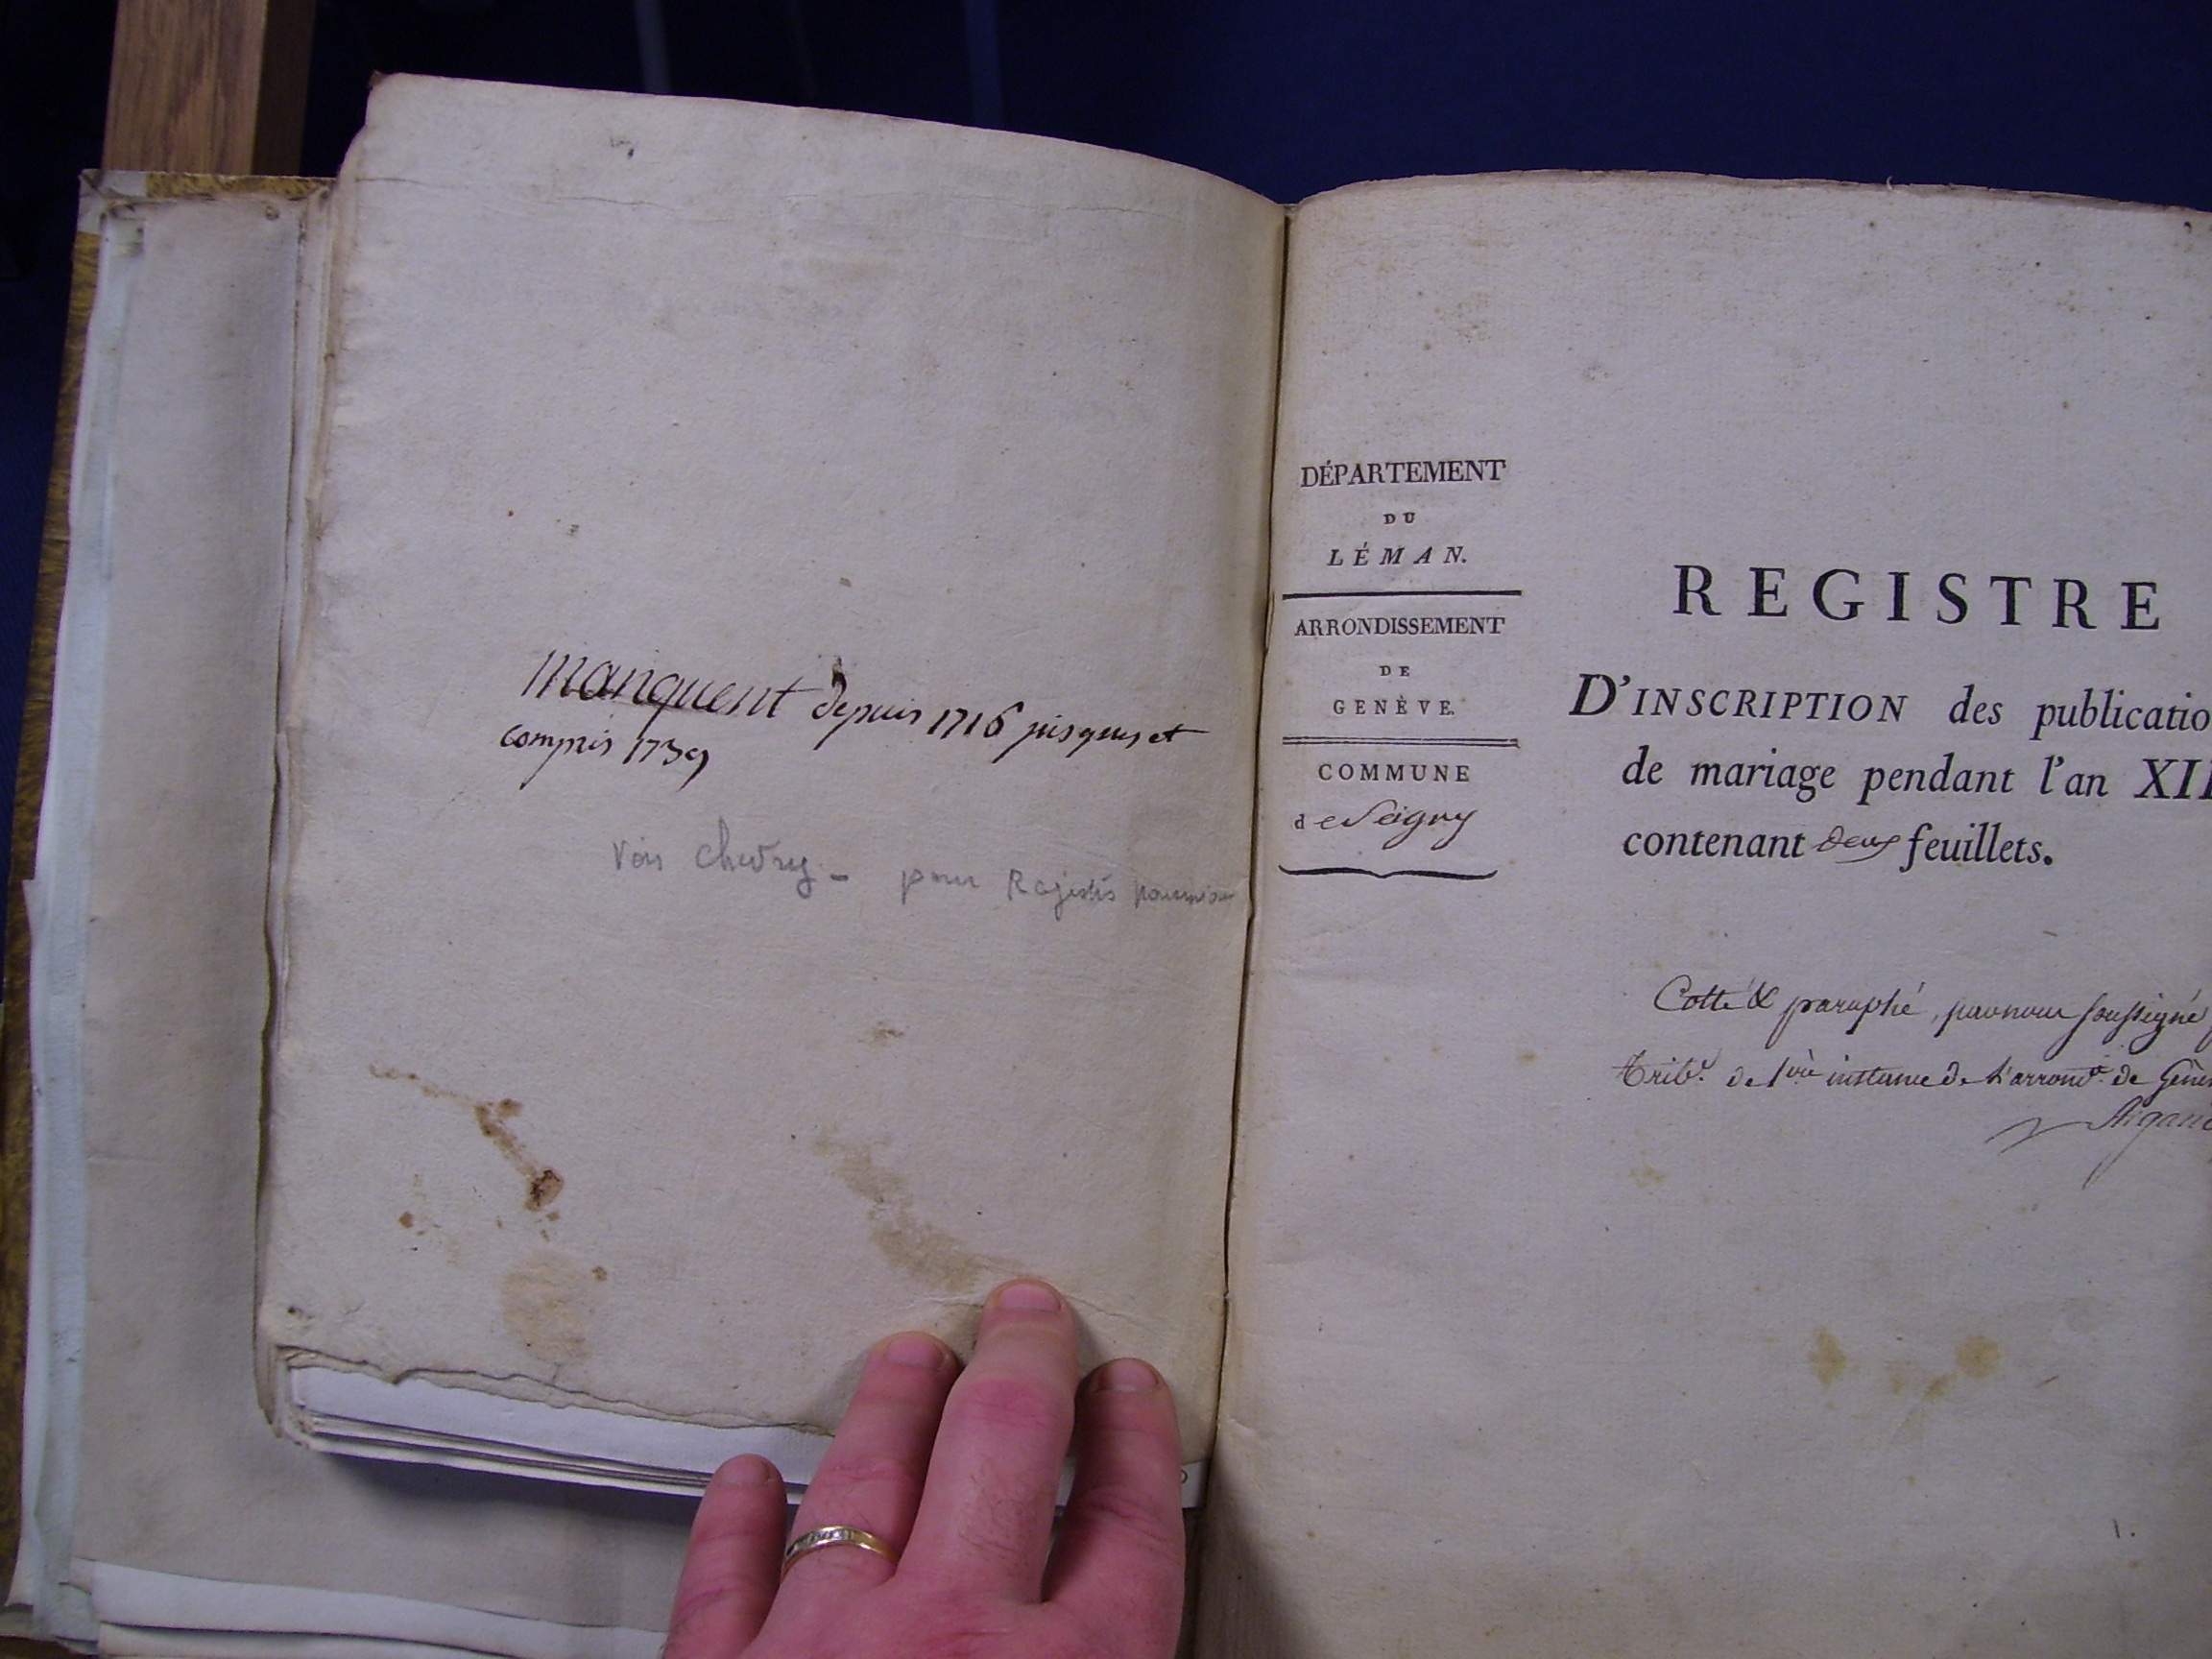 Manquent depuis 1716 jusques et
compris 1739
Voir Chevry - pour Registres paroissiaux
DÉPARTEMENT
DU
LÉMAN.
ARRONDISSEMENT
DE
GENÈVE.
COMMUNE
de Seigny
REGISTRE
D'INSCRIPTION des publicatio
de mariage pendant l'an XII
contenant deux feuillets.
Cotté & paraphé, par nous soussigné
Tribl. de 1ère instance de l'arrondt. de Genè
1.